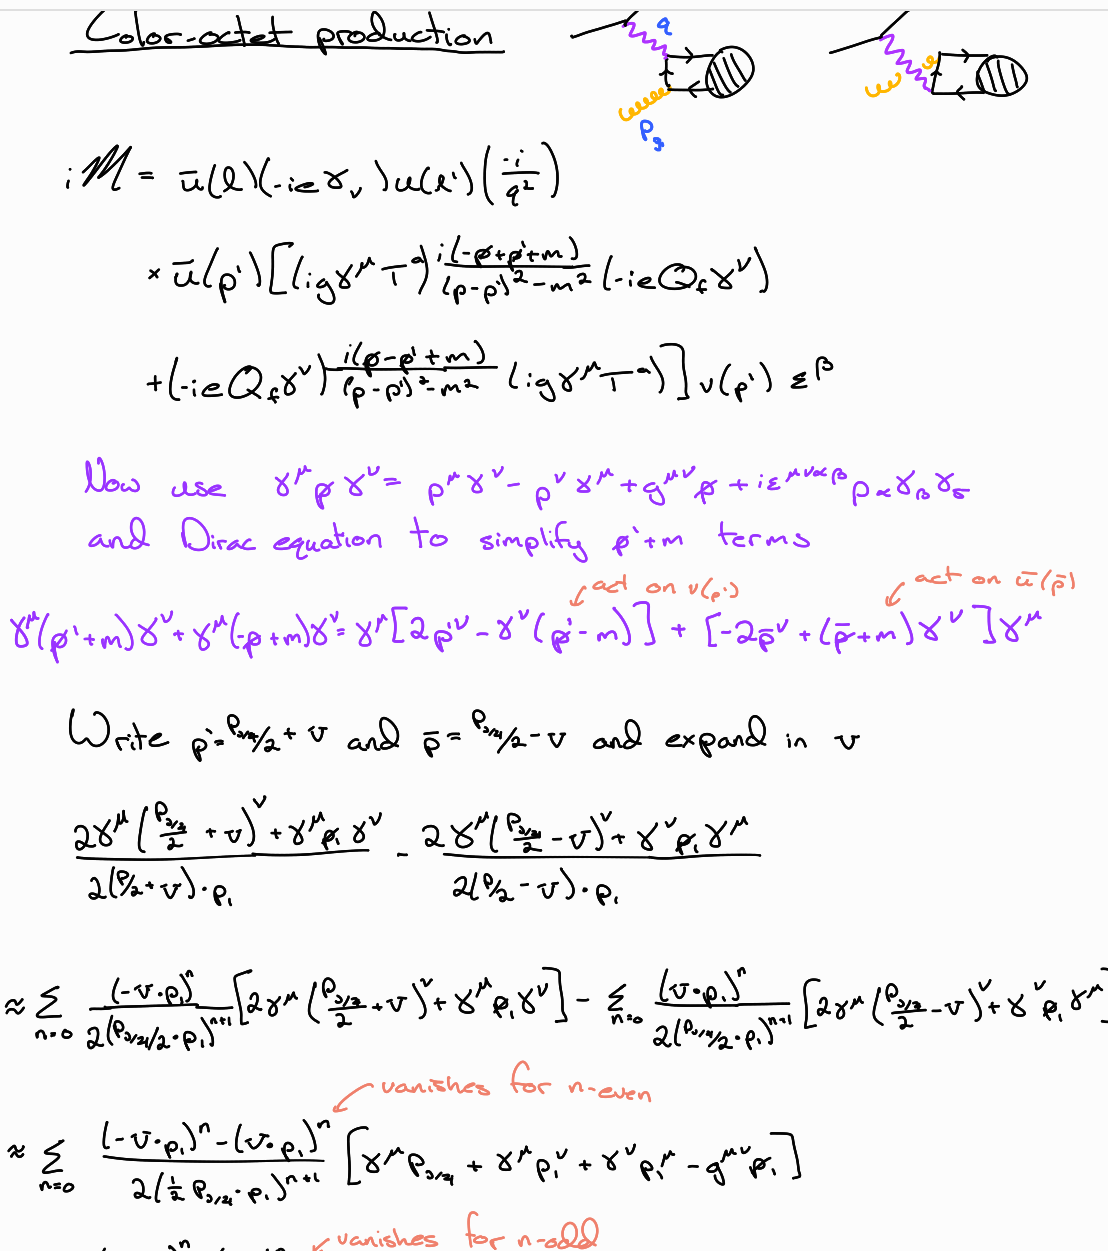 Color-octet production
q
P_g
iM = ū(l)(-ieγ_ν)u(l')(-i/q²)
× ū(p')[(igγ^μ T^a) i(-p̸+p̸'+m)/((p-p')²-m²) (-ieQ_f γ^ν)
+(-ieQ_f γ^ν) i(p̸-p̸'+m)/((p-p')²-m²) (igγ^μ T^a)] v(p') ε^β
Now use γ^μ p̸ γ^ν = p^μ γ^ν - p^ν γ^μ + g^{μν} p̸ + iε^{μναβ} p_α γ_β γ_5
and Dirac equation to simplify p̸'+m terms
act on v(p')
act on ū(p̄)
γ^μ(p̸'+m)γ^ν + γ^μ(-p̸+m)γ^ν = γ^μ[2p'^ν - γ^ν(p̸'-m)] + [-2p̄^ν + (p̸̄+m)γ^ν]γ^μ
Write p' = P_{J/ψ}/2 + v and p̄ = P_{J/ψ}/2 - v and expand in v
(2γ^μ(P_{J/ψ}/2 + v)^ν + γ^μ p̸_1 γ^ν)/(2(P/2 + v)·p_1) - (2γ^μ(P_{J/ψ}/2 - v)^ν + γ^ν p̸_1 γ^μ)/(2(P/2 - v)·p_1)
≈ Σ_{n=0} (-v·p_1)^n/(2(P_{J/ψ}/2·p_1)^{n+1}) [2γ^μ(P_{J/ψ}/2 + v)^ν + γ^μ p̸_1 γ^ν] - Σ_{n=0} (v·p_1)^n/(2(P_{J/ψ}/2·p_1)^{n+1}) [2γ^μ(P_{J/ψ}/2 - v)^ν + γ^ν p̸_1 γ^μ]
vanishes for n-even
≈ Σ_{n=0} ((-v·p_1)^n - (v·p_1)^n)/(2(½ P_{J/ψ}·p_1)^{n+1}) [γ^μ P_{J/ψ} + γ^μ p_1^ν + γ^ν p_1^μ - g^{μν} p̸_1]
vanishes for n-odd